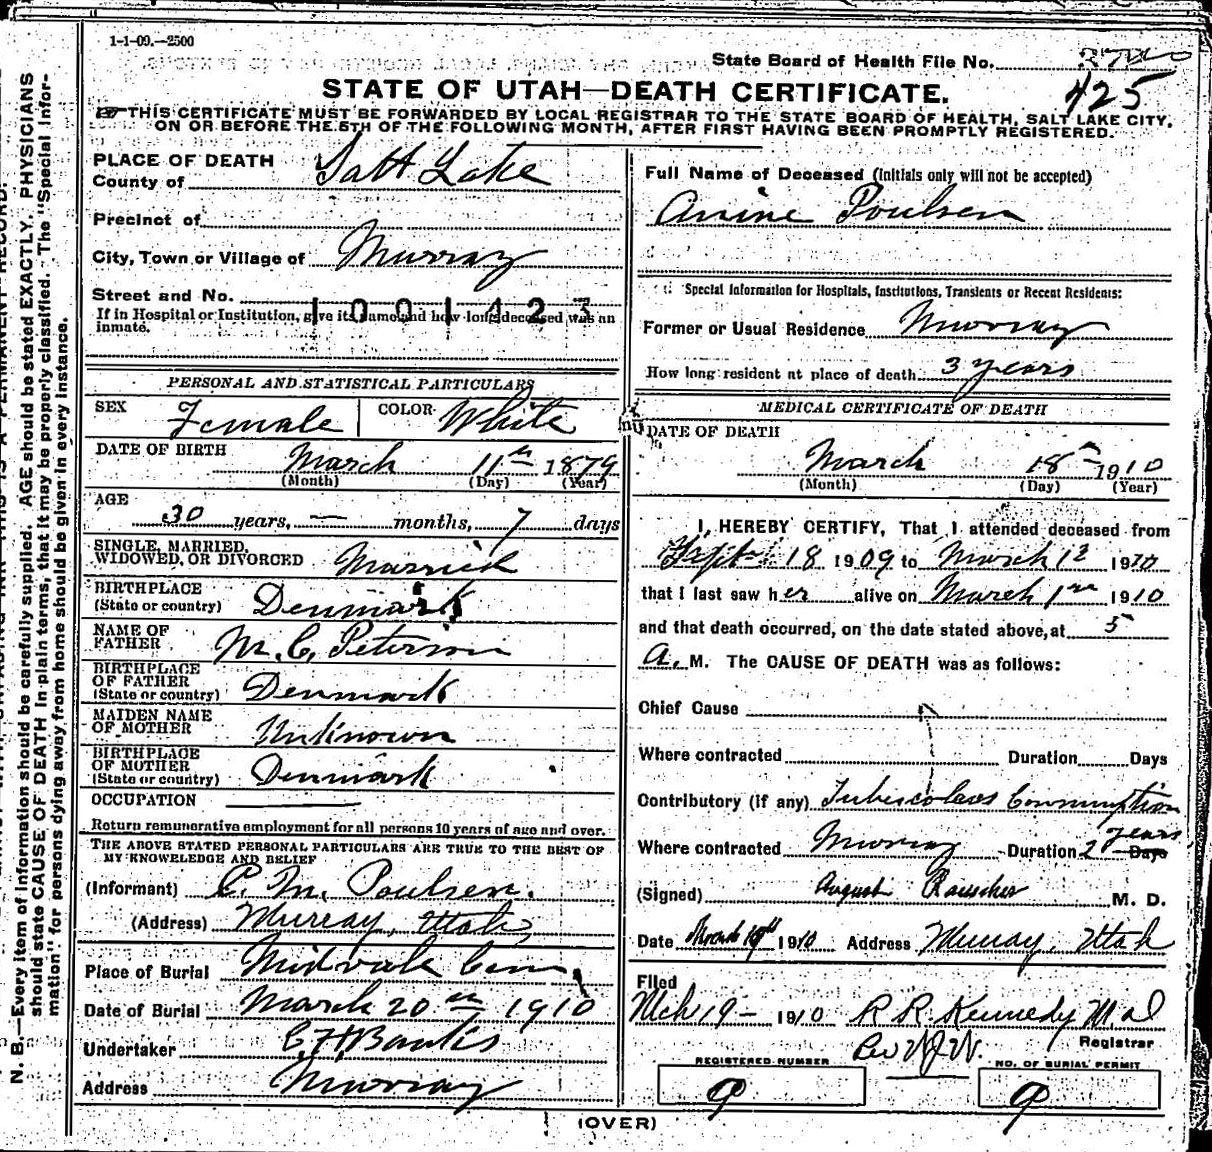 1-1-09.—2500
State Board of Health File No.
425
STATE OF UTAH—DEATH CERTIFICATE.
THIS CERTIFICATE MUST BE FORWARDED BY LOCAL REGISTRAR TO THE STATE BOARD OF HEALTH, SALT LAKE CITY,
ON OR BEFORE THE 5TH OF THE FOLLOWING MONTH, AFTER FIRST HAVING BEEN PROMPTLY REGISTERED.
N. B.—Every item of information should be carefully supplied. AGE should be stated EXACTLY. PHYSICIANS
should state CAUSE OF DEATH in plain terms, that it may be properly classified. The "Special Infor-
mation" for persons dying away from home should be given in every instance.
PLACE OF DEATH
County of Salt Lake
Precinct of
City, Town or Village of Murray
Street and No.
1001423
If in Hospital or Institution, give its name and how long deceased was an
inmate.
PERSONAL AND STATISTICAL PARTICULARS
SEX Female COLOR White
DATE OF BIRTH March 11th 1879
(Month) (Day) (Year)
AGE
30 years, — months, 7 days
SINGLE, MARRIED,
WIDOWED, OR DIVORCED Married
BIRTHPLACE
(State or country) Denmark
NAME OF
FATHER M. C. Peterson
BIRTHPLACE
OF FATHER
(State or country) Denmark
MAIDEN NAME
OF MOTHER Unknown
BIRTHPLACE
OF MOTHER
(State or country) Denmark
OCCUPATION
Return remunerative employment for all persons 10 years of age and over.
THE ABOVE STATED PERSONAL PARTICULARS ARE TRUE TO THE BEST OF
MY KNOWLEDGE AND BELIEF
(Informant) P. M. Poulsen.
(Address) Murray, Utah,
Place of Burial Midvale Cem
Date of Burial March 20th 1910
Undertaker
Address Murray
Full Name of Deceased (Initials only will not be accepted)
Anine Poulsen
Special Information for Hospitals, Institutions, Transients or Recent Residents:
Former or Usual Residence Murray
How long resident at place of death 3 years
MEDICAL CERTIFICATE OF DEATH
DATE OF DEATH
March 18th 1910
(Month) (Day) (Year)
I, HEREBY CERTIFY, That I attended deceased from
Sept 18 1909 to March 12 1910
that I last saw her alive on March 1910
and that death occurred, on the date stated above, at 5
A. M. The CAUSE OF DEATH was as follows:
Chief Cause
Where contracted Duration Days
Contributory (if any)
Where contracted Murray Duration 2 years Days
(Signed) August Rauscher M. D.
Date March 19th 1910 Address Murray, Utah
Filed
Mch 19 - 1910 R. R. Kennedy
Registrar
Per W.J.W.
REGISTERED NUMBER
9
NO. OF BURIAL PERMIT
9
(OVER)